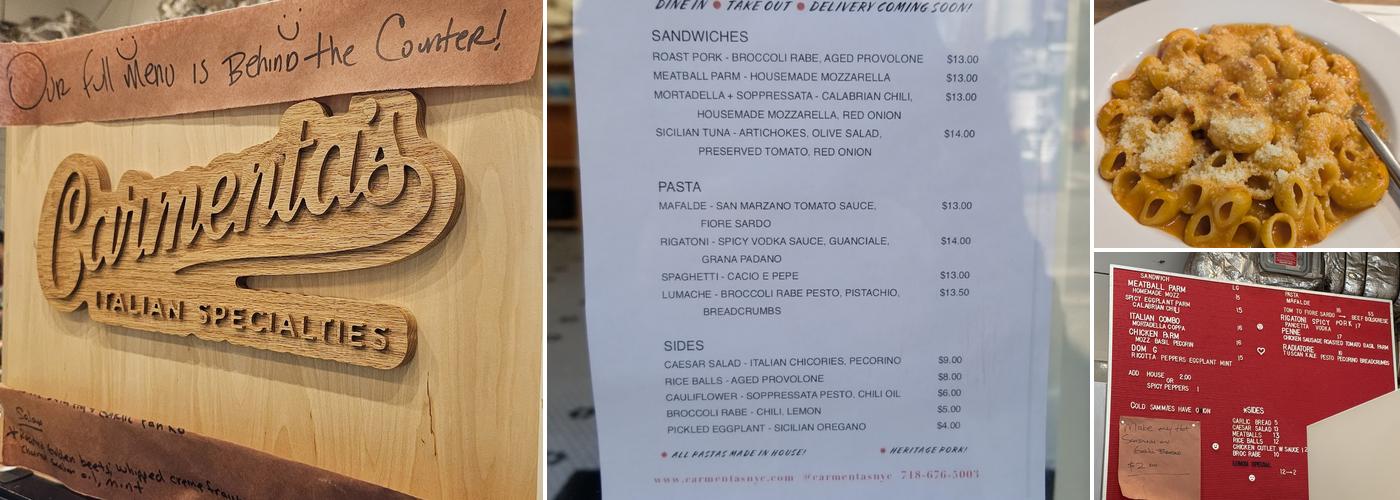 Our full Menu is Behind the Counter!
Carmenta's
ITALIAN SPECIALTIES
Salad
whipped
oil, mint
DINE IN • TAKE OUT • DELIVERY COMING SOON!
SANDWICHES
ROAST PORK - BROCCOLI RABE, AGED PROVOLONE $13.00
MEATBALL PARM - HOUSEMADE MOZZARELLA $13.00
MORTADELLA + SOPPRESSATA - CALABRIAN CHILI, $13.00
HOUSEMADE MOZZARELLA, RED ONION
SICILIAN TUNA - ARTICHOKES, OLIVE SALAD, $14.00
PRESERVED TOMATO, RED ONION
PASTA
MAFALDE - SAN MARZANO TOMATO SAUCE, $13.00
FIORE SARDO
RIGATONI - SPICY VODKA SAUCE, GUANCIALE, $14.00
GRANA PADANO
SPAGHETTI - CACIO E PEPE $13.00
LUMACHE - BROCCOLI RABE PESTO, PISTACHIO, $13.50
BREADCRUMBS
SIDES
CAESAR SALAD - ITALIAN CHICORIES, PECORINO $9.00
RICE BALLS - AGED PROVOLONE $8.00
CAULIFLOWER - SOPPRESSATA PESTO, CHILI OIL $6.00
BROCCOLI RABE - CHILI, LEMON $5.00
PICKLED EGGPLANT - SICILIAN OREGANO $4.00
• ALL PASTAS MADE IN HOUSE! • HERITAGE PORK!
www.carmentasnyc.com @carmentasnyc 718-676-5003
SANDWICH LG
MEATBALL PARM
HOMEMADE MOZZ 15
SPICY EGGPLANT PARM
CALABRIAN CHILI 15
ITALIAN COMBO
MORTADELLA COPPA 16
CHICKEN PARM
MOZZ BASIL PECORIN 16
DOM G
RICOTTA PEPPERS EGGPLANT MINT 15
ADD HOUSE 2.00
OR
SPICY PEPPERS 1
COLD SAMMIES HAVE O ION
PASTA
MAFALDE
TOM TO FIORE SARDO 16 BEEF BOLOGNESE
RIGATONI SPICY PORK 17
PANCETTA VODKA
PENNE 17
CHICKEN SAUSAGE ROASTED TOMATO BASIL PARM
RADIATORE 16
TUSCAN KALE PESTO PECORINO BREADCRUMBS
SIDES
GARLIC BREAD 5
CAESAR SALAD 13
MEATBALLS 13
RICE BALLS 12
CHICKEN CUTLET W SAUCE 12
BROC RABE 10
LUNCH SPECIAL
12→2
Make any Hot
Sandwich on
Garlic Bread
$2.00